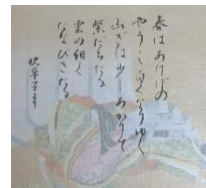 春はあけぼの
やう〳〵白くなりゆく
山ぎは少しあかりて
紫だちたる
雲の細く
たなびきたる
枕草子より